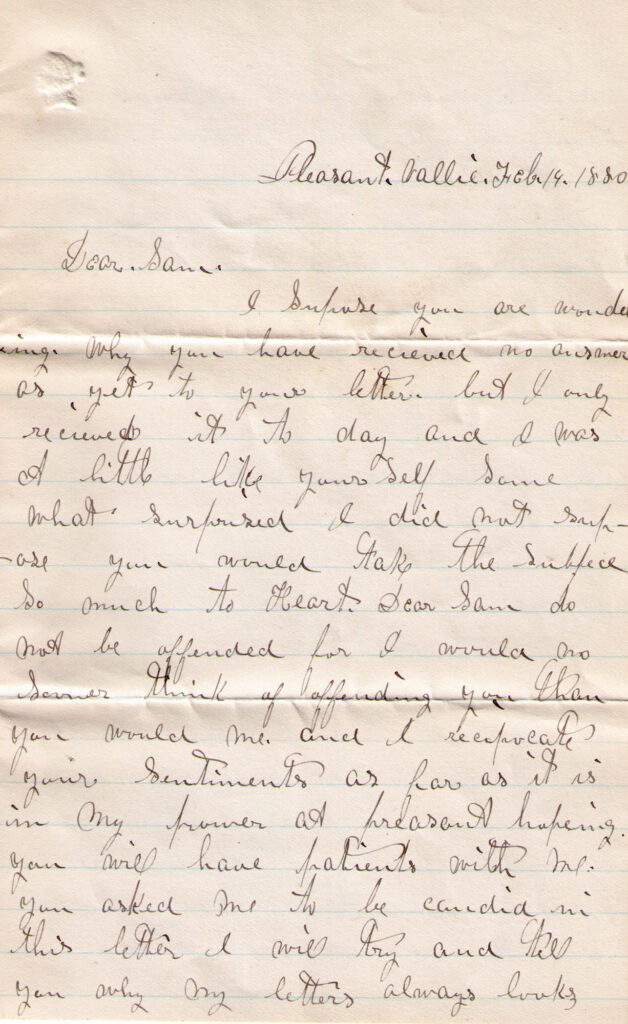 Pleasant. Vallie. Feb. 14. 1880
Dear. Sam.
I Supose you are wonde
ing. why you have recieved no answer
as yet to your letter. but I only
recieved it to day and I was
A little like yourself Some
what Surprized I did not Sup-
-ose you would tak the Subjece
So much to Heart. Dear Sam do
not be offended for I would no
Sooner think of offending you than
you would me. and I reciprocate
your Sentiments as far as it is
in My power at preasant hopeing.
you will have patients with Me.
you asked Me to be candid in
this letter I will try and tell
you why My letters always looks